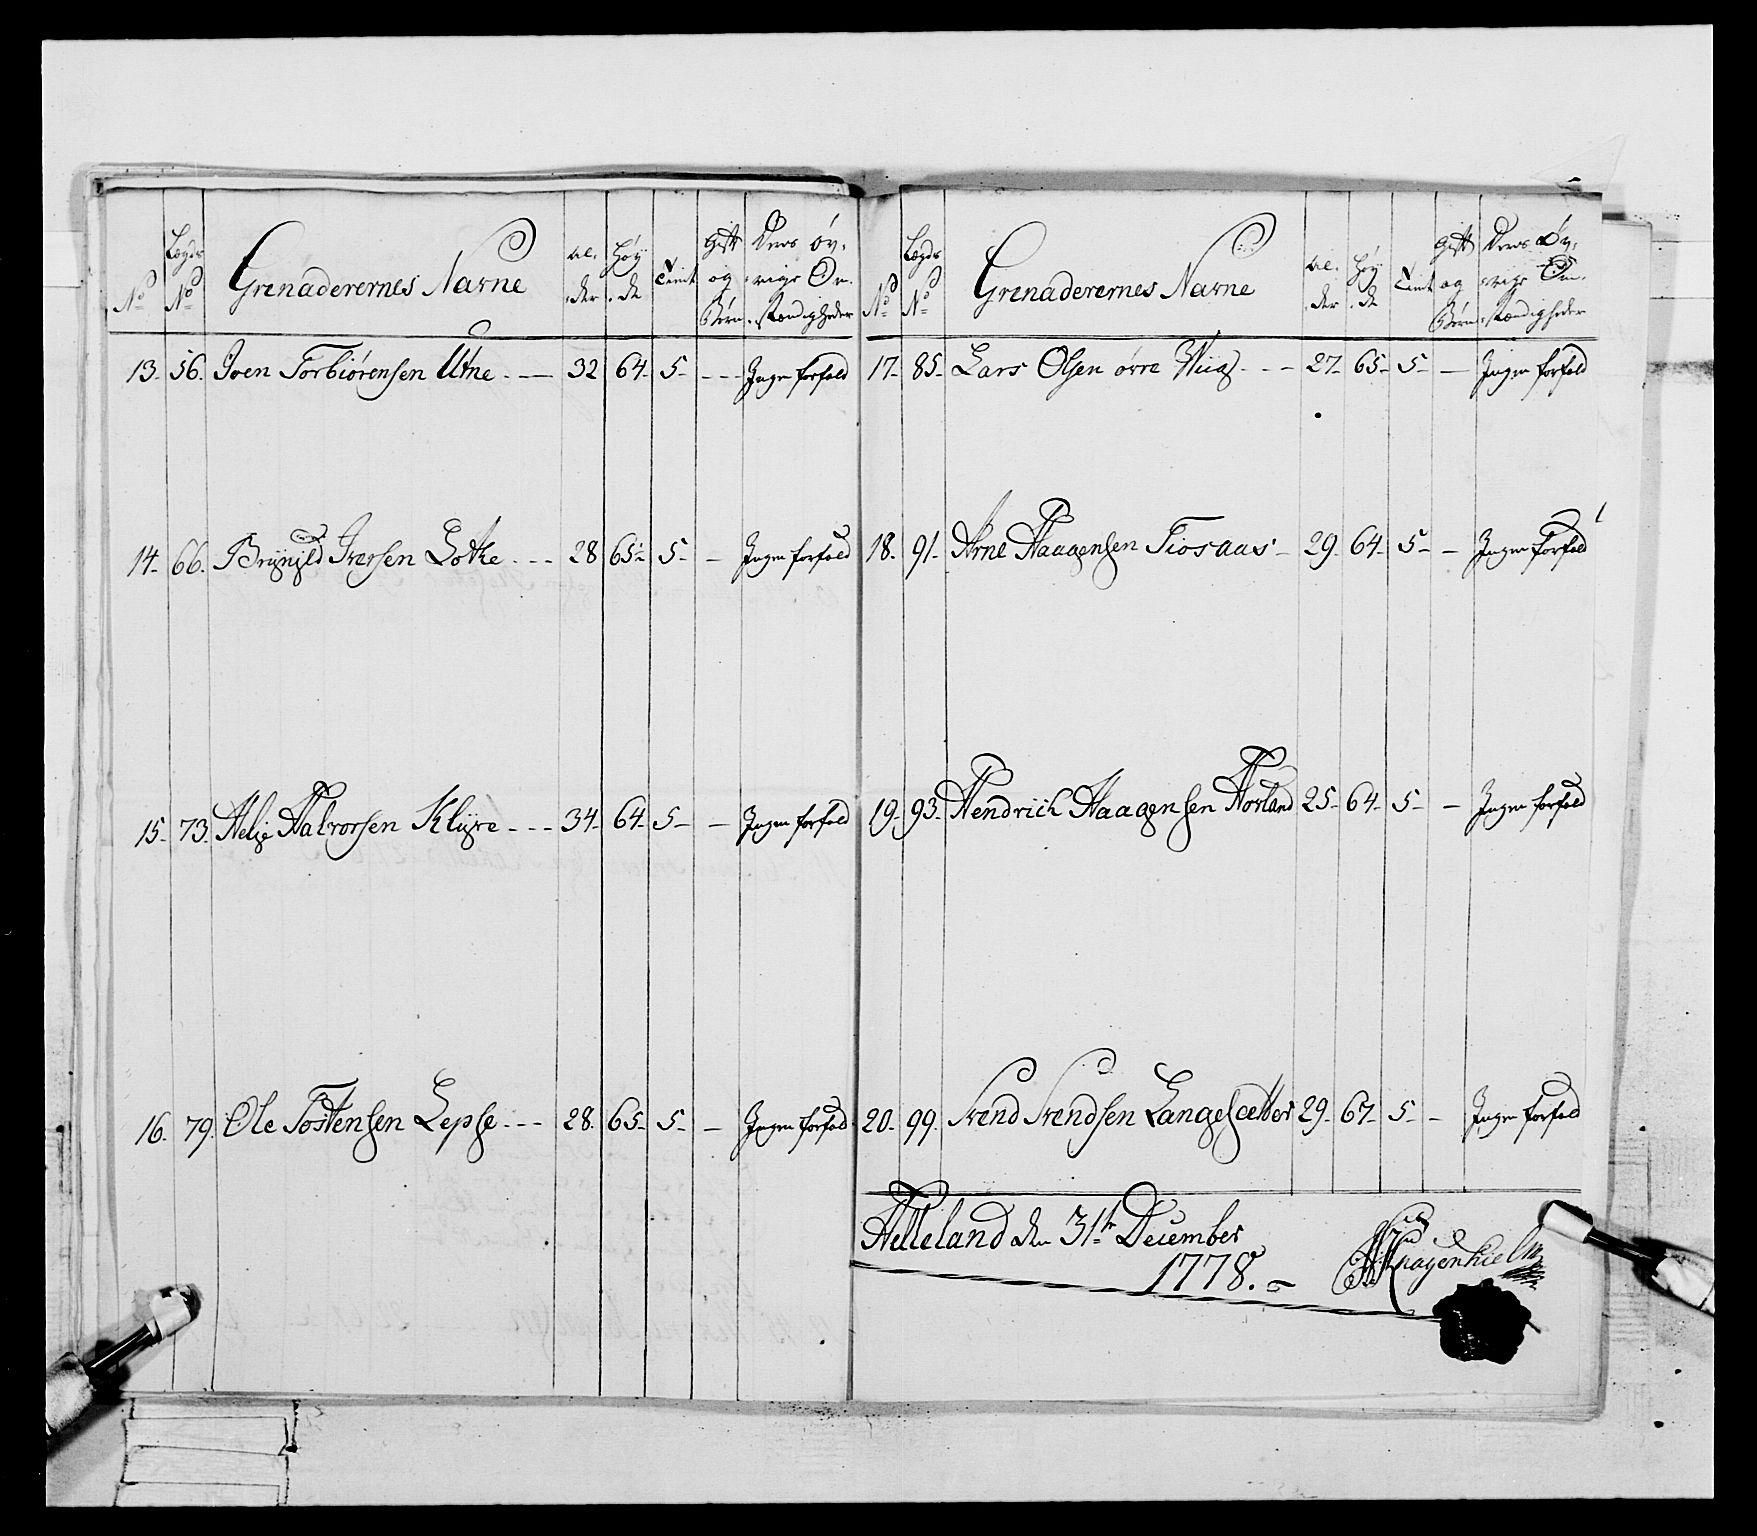 No
Lægds No
Grenaderernes Navne
Al-der
Høy-de
Tient
Gift og Børn
Deres øv-rige Om-stændigheder
13. 56. Joen Torbiörensen Utne 32 64 5 Ingen forfald
14. 66. Brynild Iversen Lothe 28 65 5 Ingen forfald
15. 73. Helje Halvorsen Klyve 34 64 5 Ingen forfald
16. 79. Ole Tostensen Lepse 28. 65 5 Ingen forfald
No
Lægds No
Grenaderernes Navne
Al-der
Høy-de
Tient
Gift og Børn
Deres Øv-rige Om-stændigheder
17. 85. Lars Olsen övre Wiig 27 65 5 Ingen forfald
18. 91. Arne Haagensen Tiosaas 29 64 5 Ingen forfald
19. 93. Hendrich Haagensen Hovland 25 64 5 Ingen forfald
20. 99. Svend Svendsen Langesætter 29 67 5 Ingen forfald
Helleland den 31te December
1778.
Kragenhielm